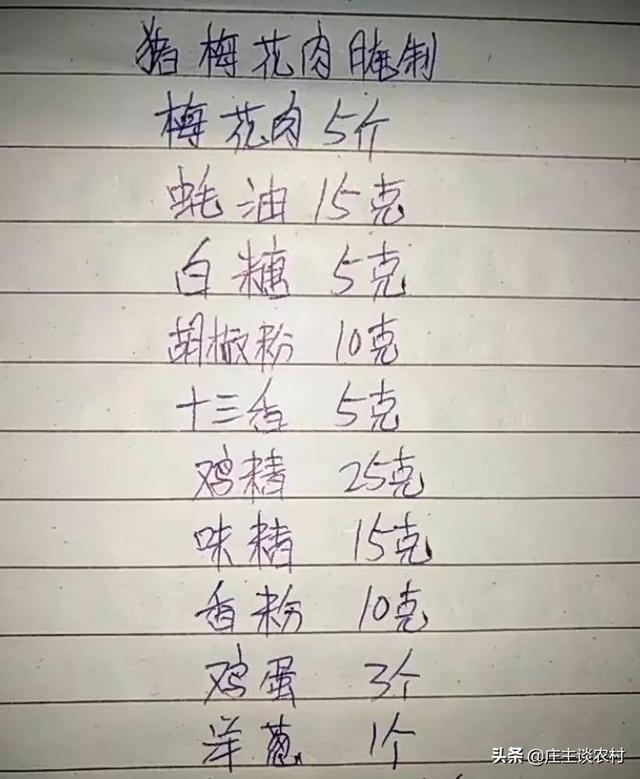 猪梅花肉腌制
梅花肉 5个
蚝油 15克
白糖 5克
胡椒粉 10克
十三香 5克
鸡精 25克
味精 15克
香粉 10克
鸡蛋 3个
洋葱 1个
头条 @庄主谈农村